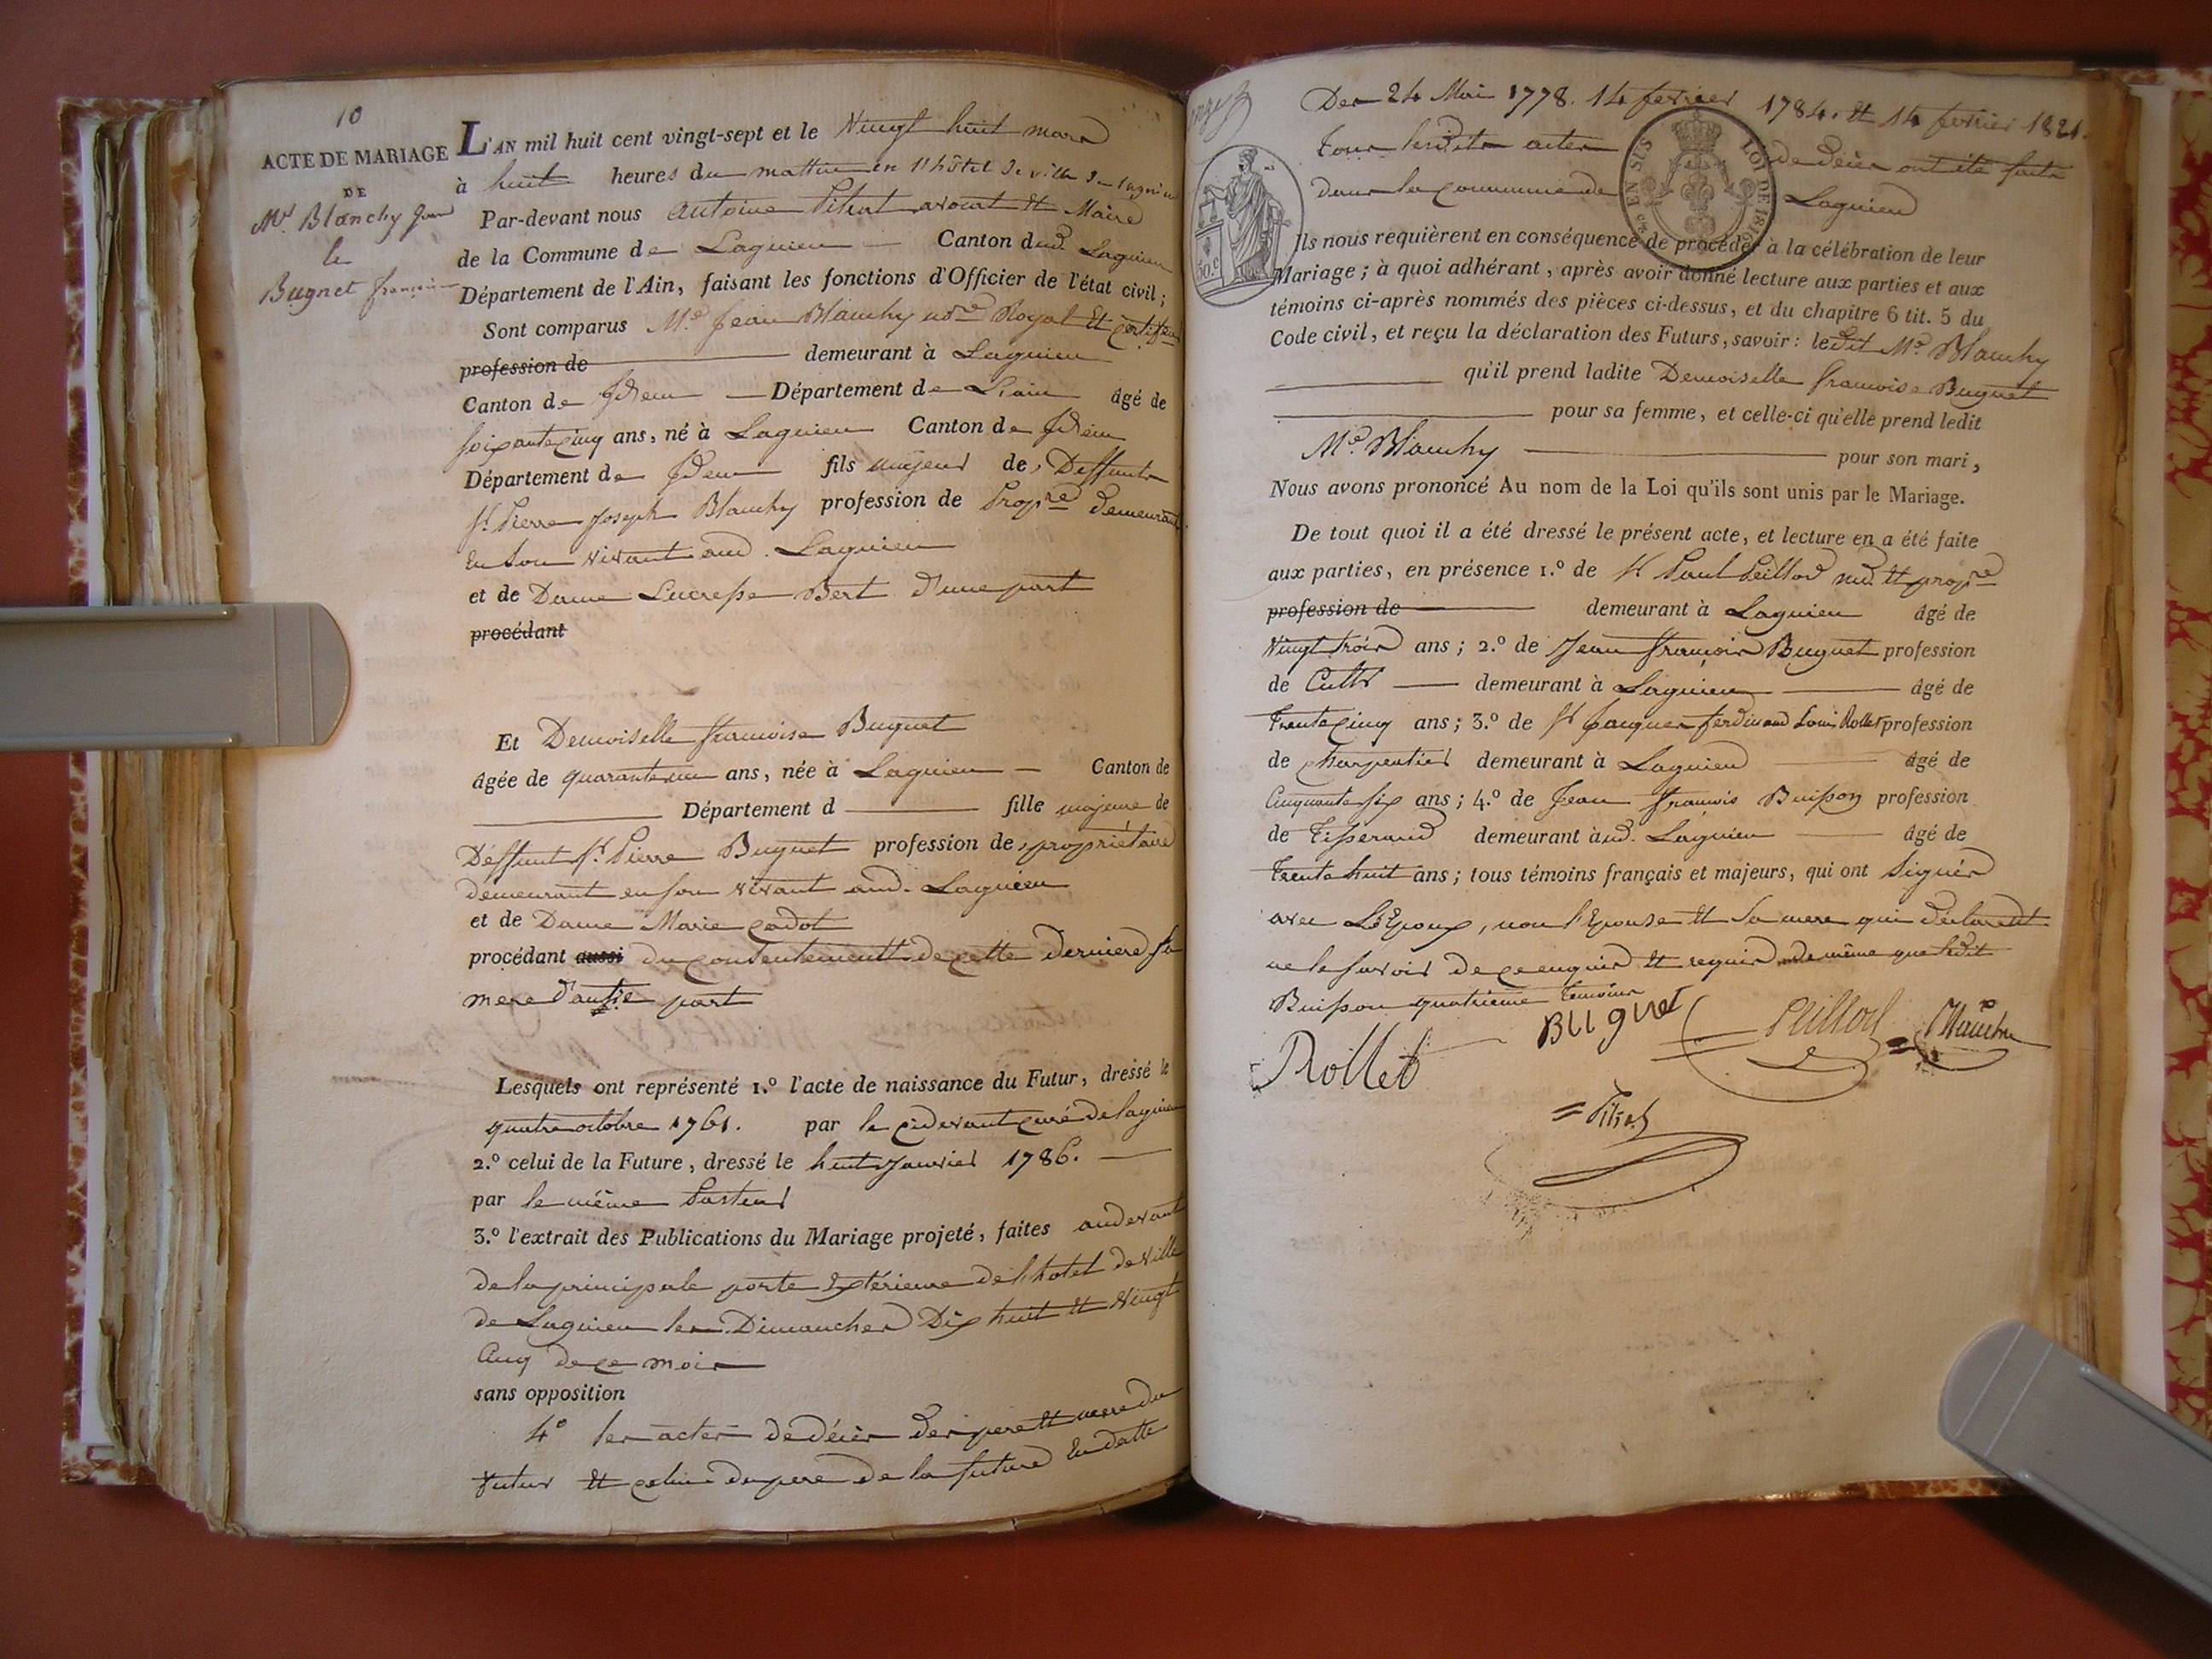 10
ACTE DE MARIAGE
DE
Me. Blanchy Jean
le
Bugnet françoise
L'AN mil huit cent vingt-sept et le Vingt huit mars
à huit heures du mattin en l'hôtel de ville de Lagnieu
Par-devant nous Antoine Pitrat avocat et Maire
de la Commune de Lagnieu — Canton dud. Lagnieu
Département de l'Ain, faisant les fonctions d'Officier de l'état civil;
Sont comparus Me. Jean Blanchy nore Royal et
profession de demeurant à Lagnieu
Canton de Idem — Département de L'ain âgé de
soixante cinq ans, né à Lagnieu Canton de Idem
Département de Idem fils majeur de Deffunts
sr. Pierre Joseph Blanchy profession de Propre demeurant
en son vivant aud. Lagnieu
et de Dame Lucresse Bert d'une part
procédant
Et Demoiselle francoise Bugnet
âgée de quarante un ans, née à Lagnieu — Canton de
Département d fille majeure de
Deffunt sr. Pierre Bugnet profession de propriétaire
demeurant en son vivant aud. Lagnieu
et de Dame Marie Cadot
procédant aussi du consentementt de cette derniere sa
mere d'autre part
Lesquels ont représenté 1.º l'acte de naissance du Futur, dressé le
quatre octobre 1761. par le cidevant curé de lagnieu
2.º celui de la Future, dressé le huit Janvier 1786.
par le même Pasteur
3.º l'extrait des Publications du Mariage projeté, faites audevant
de la principale porte extérieure de l'hotel de ville
de Lagnieu les Dimanches Dix huit et Vingt
Cinq de ce mois
sans opposition
4º les actes de décès des pere et mere du
futur et celui du pere de la future en datte
Des 24 Mai 1778. 14 fevrier 1784. et 14 fevrier 1821.
tous lesdits actes de décès ont été faits
dans la commune de Lagnieu
EN SUS LOI DE 1816
50.c
Ils nous requièrent en conséquence de procéder à la célébration de leur
Mariage; à quoi adhérant, après avoir donné lecture aux parties et aux
témoins ci-après nommés des pièces ci-dessus, et du chapitre 6 tit. 5 du
Code civil, et reçu la déclaration des Futurs, savoir: ledit Me. Blanchy
qu'il prend ladite Demoiselle francoise Bugnet
pour sa femme, et celle-ci qu'elle prend ledit
Me. Blanchy pour son mari,
Nous avons prononcé Au nom de la Loi qu'ils sont unis par le Mariage.
De tout quoi il a été dressé le présent acte, et lecture en a été faite
aux parties, en présence 1.º de sr Paul Peillod md. et propre
profession de demeurant à Lagnieu âgé de
Vingt trois ans; 2.º de Jean francois Bugnet profession
de Cultr — demeurant à Lagnieu âgé de
trente cinq ans; 3.º de sr Jacques ferdinand Louis Rollet profession
de charpentier demeurant à Lagnieu âgé de
Cinquante six ans; 4.º de Jean francois Buisson profession
de Tisserand demeurant àud. Lagnieu âgé de
trente huit ans; tous témoins français et majeurs, qui ont signés
avec L'Epoux, non l'Epouse et sa mere qui declarent
ne le savoir de ce enquis et requis de même que ledit
Buisson quatrieme temoins
Rollet BUgnet Peillod Blanchy
Pitrat